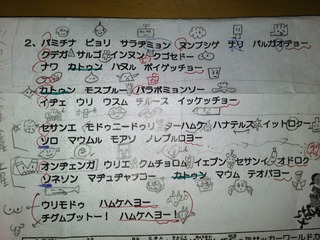 2、パミチナ ピョリ サラヂミョン ヌンプシゲ ナリ パルガオヂョー
クデガ サルゴ インヌン クゴセドー
ナワ カトゥン ハヌル ポイゲッチョー
カトゥン モスプルー パラボミョンソー
イヂェ ウリ ウスム チルース イッケッチョー
セサンエ モドゥニードゥリ ターハムケ ハナテルス イットロクー
ソロ マウムル モアソ ノレブルロヨー
オンヂェンガ ウリエ クムチョロム イェプン セサンイ オドロク
ソネソン マヂュヂャプコー カトゥン マウム テオバヨー
ウリモドゥ ハムケヘヨー
チグムブットー! ハムケヘヨー!